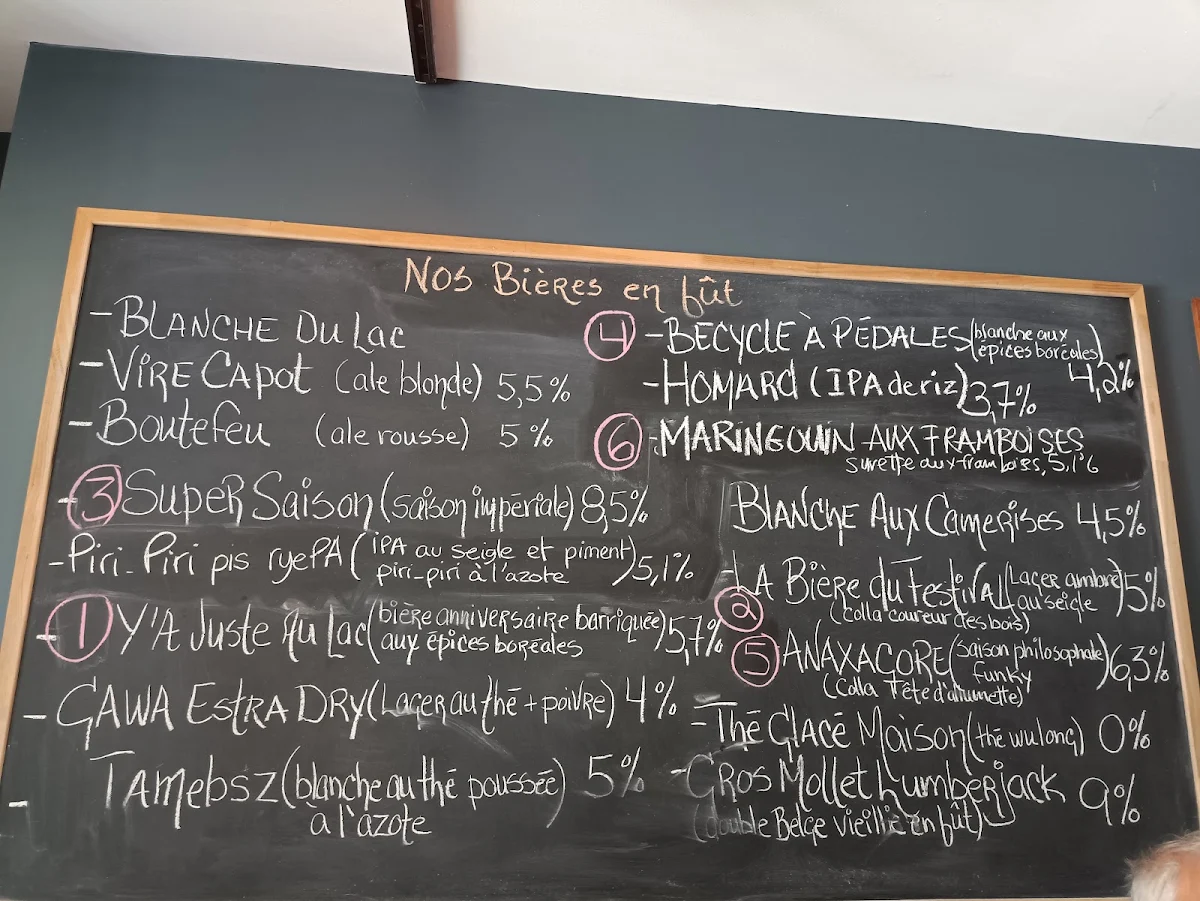 Nos Bières en fût
- Blanche Du Lac
- Vire Capot (ale blonde) 5,5%
- Boutefeu (ale rousse) 5%
- 3 Super Saison (saison impériale) 8,5%
- Piri-Piri pis ryePA (IPA au seigle et piment
piri-piri à l'azote) 5,1%
- 1 Y'A Juste Au Lac (bière anniversaire barriquée
aux épices boréales) 5,7%
- GAWA Estra Dry (Lager au thé + poivre) 4%
- Tamebsz (blanche au thé poussée
à l'azote) 5%
4 - BECYCLE À PÉDALES (blanche aux
épices boréales) 4,2%
- HOMARd (IPA de riz) 3,7%
6 - MARINGOUIN AUX FRAMBOISES
surette aux framboises, 5,1%
- Blanche Aux Camerises 4,5%
2 - LA Bière du Festival (Lager ambre
au seigle) 5%
(Colla coureur des bois)
5 ANAXAGORE (saison philosophale
funky) 6,3%
(Colla Tête d'allumette)
- Thé Glacé Maison (thé wulong) 0%
- Gros Mollet Lumberjack 9%
(double Belge vieillie en fût)